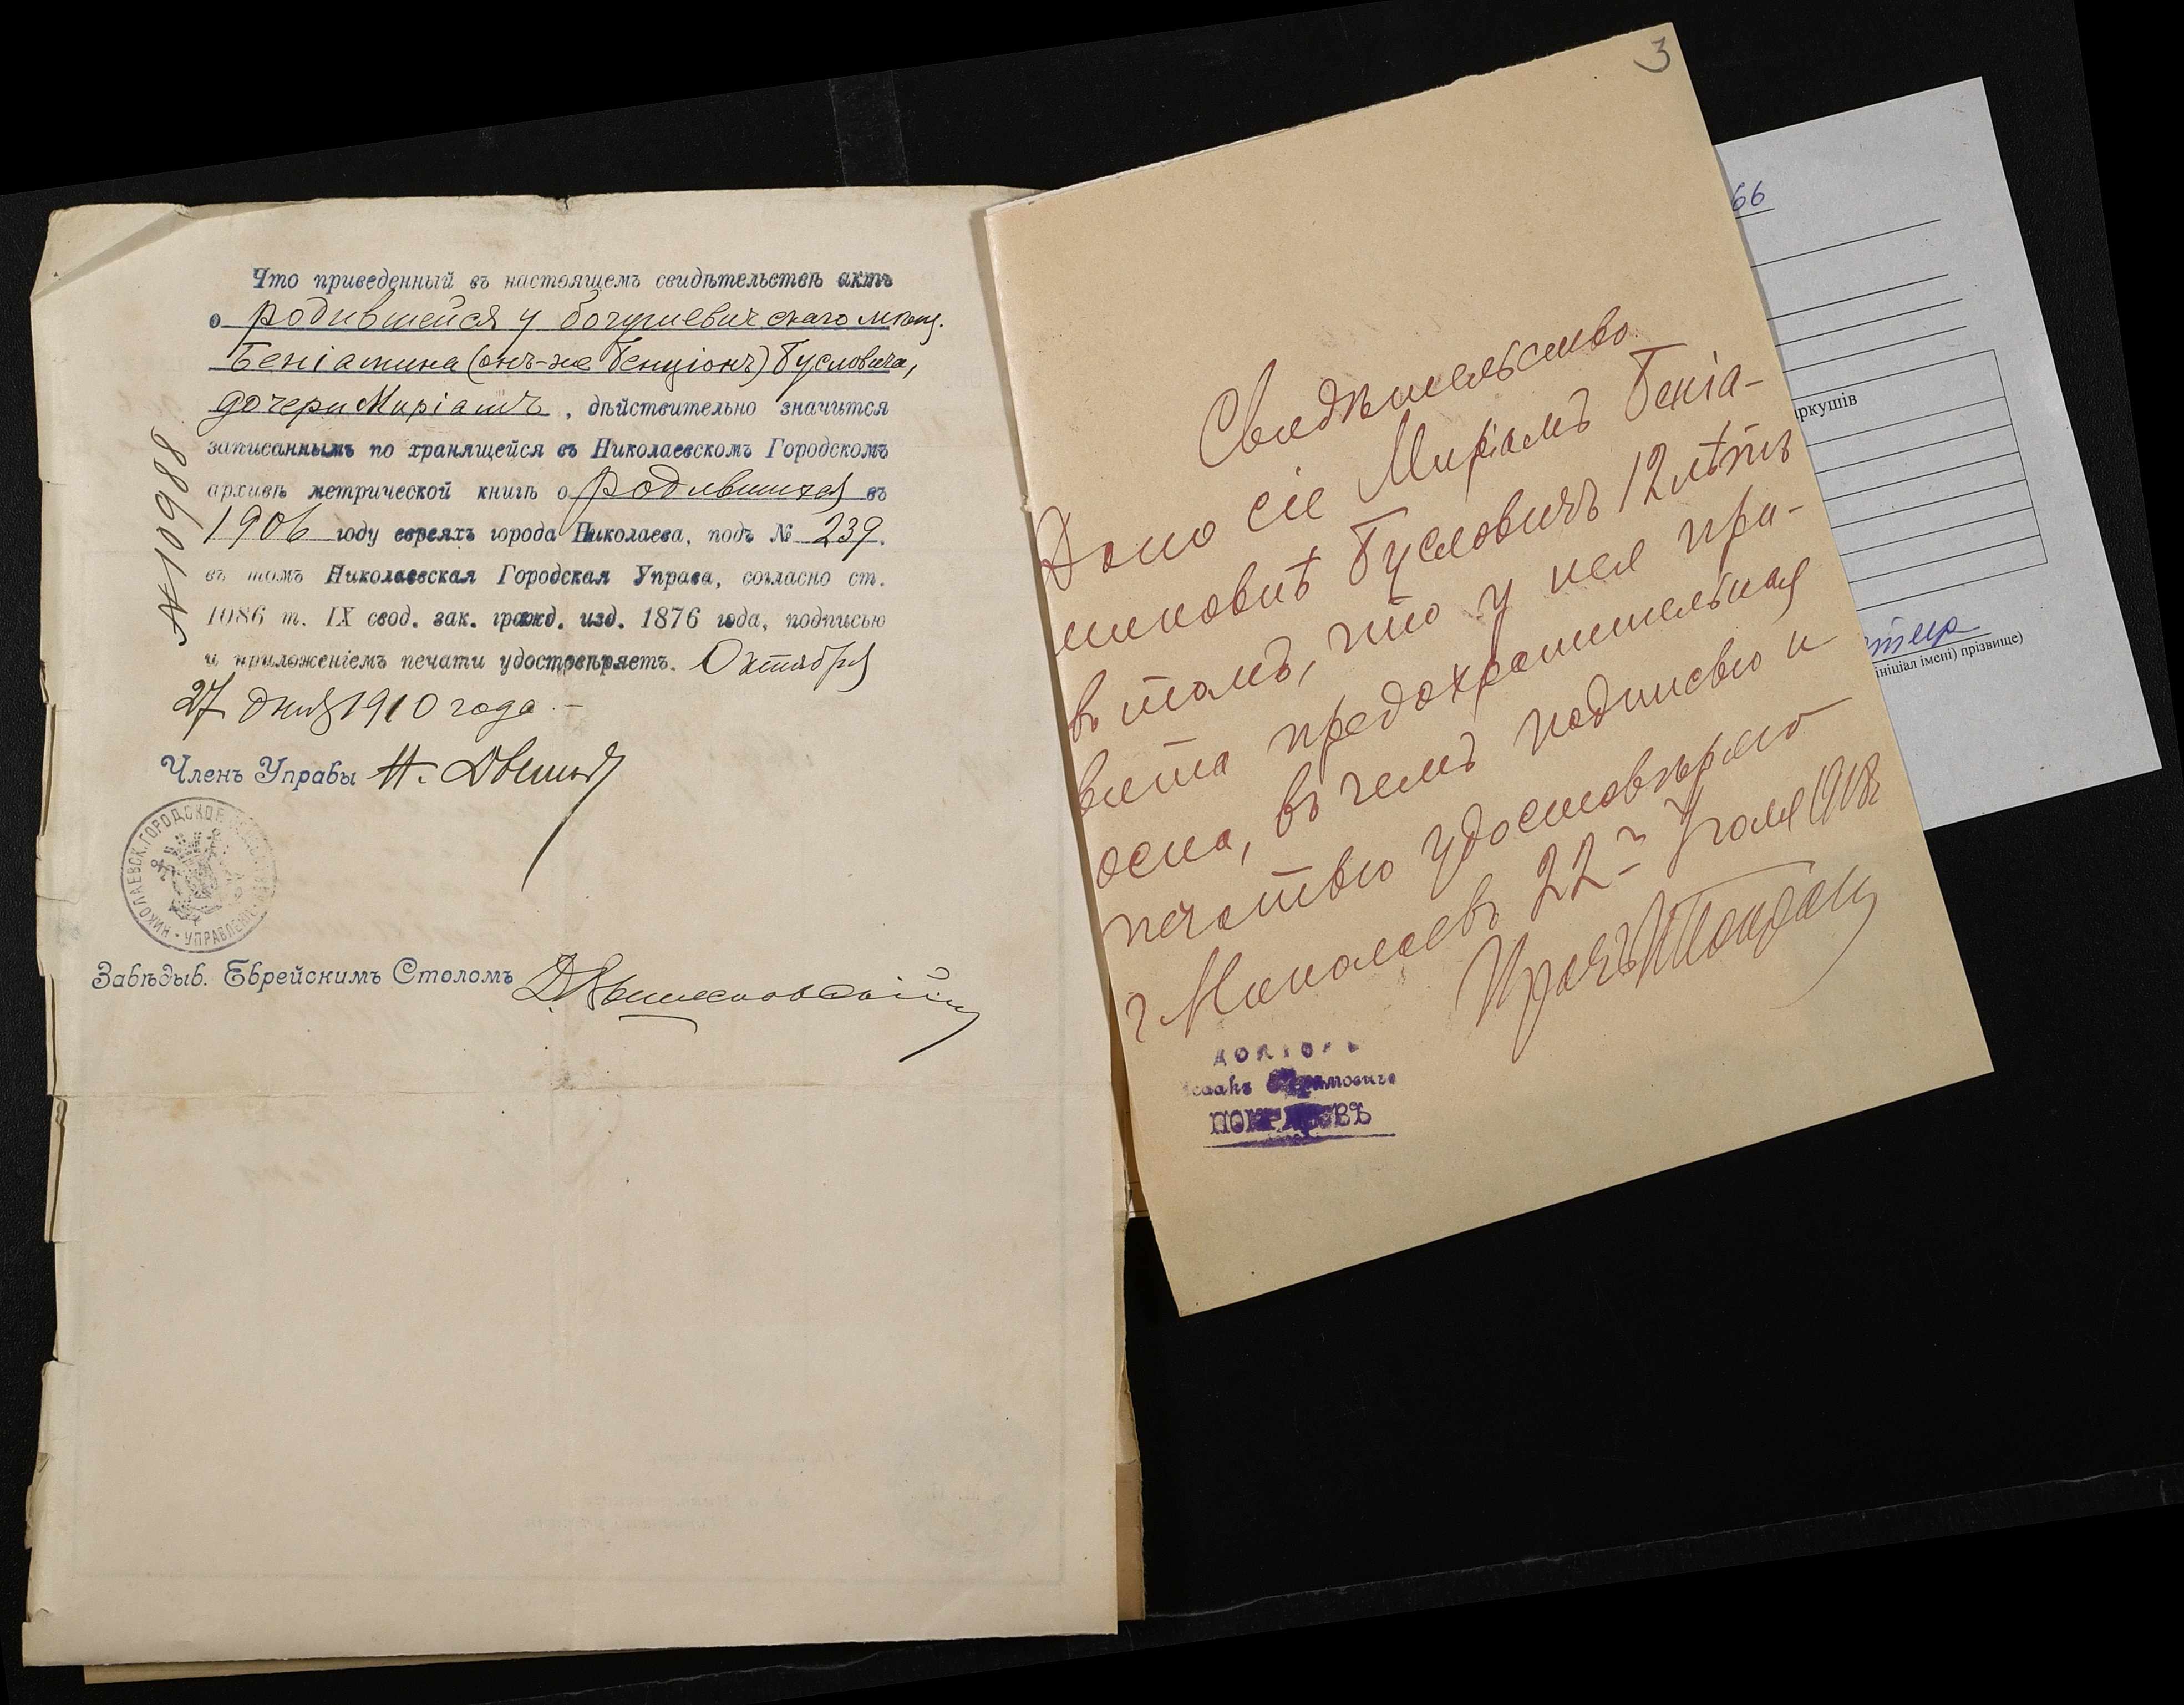 Что приведенный въ настоящемъ свидѣтельствѣ актъ
о родившейся у богушевичскаго мѣщ.
Беніамина (онъ-же Бенціонъ) Бусловича,
дочери Миріамъ, дѣйствительно значится
записаннымъ по хранящейся въ Николаевскомъ Городскомъ
архивѣ метрической книгѣ о родившихся въ
1906 году евреяхъ города Николаева, подъ № 239.
въ томъ Николаевская Городская Управа, согласно ст.
1086 т. IX свод. зак. гражд. изд. 1876 года, подписью
и приложеніемъ печати удостовѣряетъ. Октября
27 дня 1910 года.-
№10988
Членъ Управы
НИКОЛАЕВСК. ГОРОДСКОЕ УПРАВЛЕНІЕ
Завѣдыв. Еврейскимъ Столомъ
3
Свидѣтельство.
Дано сіе Миріамъ Беніа-
миновнѣ Бусловичъ 12 лѣтъ
въ томъ, что у нея при-
вита предохранительная
оспа, въ чемъ подписью и
печатью удостовѣряю
г. Николаевъ 22го Іюля 1918г
Врачъ
ДОКТОРЪ
Исаакъ
66
аркушів
ініціал імені) прізвище)